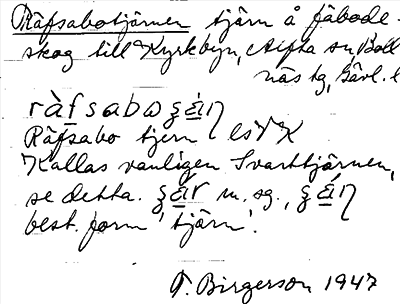 Räfsabotjärnen tjärn å fäbode-
skog till Kyrkbyn, Alfta sn, Boll
näs tg, Gävl. l
Räfsabo tjern
Kallas vanligen Svarttjärnen,
se detta. m. sg.,
best. form 'tjärn'.
T. Birgerson 1947